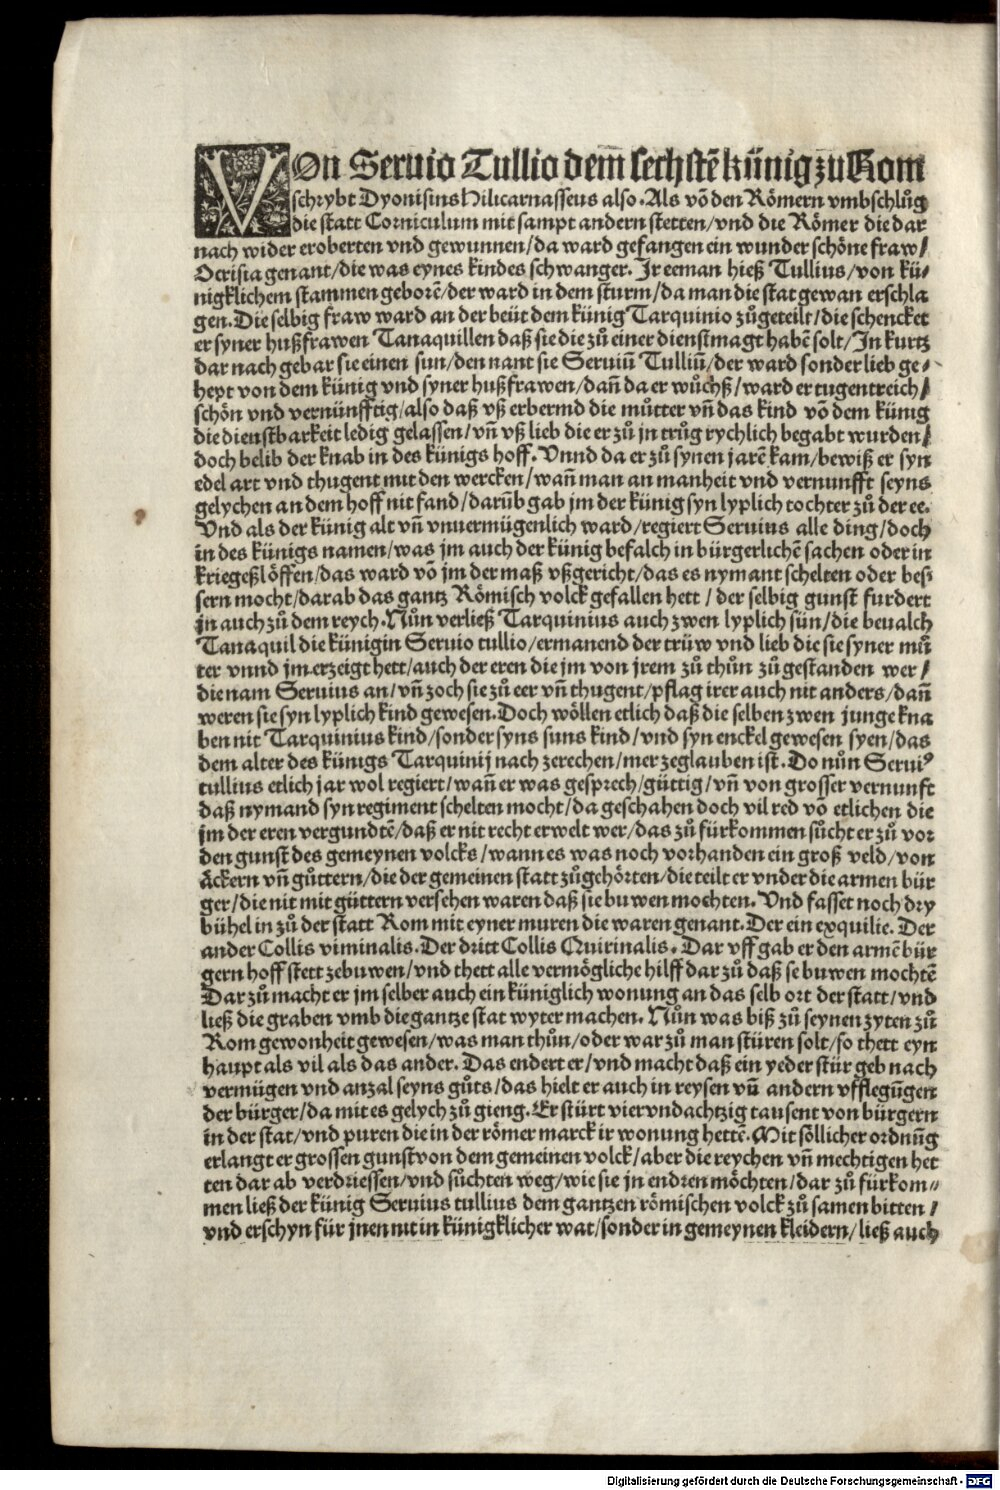 VOn Seruio Tullio dem sechstē künig zu Rom
schrybt Dyonisius Hilicarnasseus also. Als vō den Römern vmbschlůg
die statt Corniculum mit sampt andern stetten/vnd die Römer die dar
nach wider eroberten vnd gewunnen/da ward gefangen ein wunder schöne fraw/
Ocrisia genant/die was eynes kindes schwanger. Ir eeman hieß Tullius/von kü⸗
nigklichem stammen geborē/der ward in dem sturm/da man die stat gewan erschla
gen. Die selbig fraw ward an der beüt dem künig Tarquinio zůgeteilt/die schencket
er syner hußfrawen Tanaquillen daß sie die zů einer dienstmagt habē solt/In kurtz
dar nach gebar sie einen sun/den nant sie Seruiū Tulliū/der ward sonder lieb ge⸗
hept von dem künig vnd syner hußfrawen/dañ da er wůchß/ward er tugentreich/
schön vnd vernünfftig/also daß vß erbermd die můtter vñ das kind vō dem künig
die dienstbarkeit ledig gelassen/vñ vß lieb die er zů jn trůg rychlich begabt wurden/
doch belib der knab in des künigs hoff. Vnnd da er zů synen jarē kam/bewiß er syn
edel art vnd thugent mit den wercken/wañ man an manheit vnd vernunfft seyns
gelychen an dem hoff nit fand/darūb gab jm der künig syn lyplich tochter zů der ee.
Vnd als der künig alt vñ vnuermügenlich ward/regiert Seruius alle ding/doch
in des künigs namen/was jm auch der künig befalch in bürgerlichē sachen oder in
kriegeßlöffen/das ward vō jm der maß vßgericht/das es nymant schelten oder bes⸗
sern mocht/darab das gantz Römisch volck gefallen hett/der selbig gunst furdert
jn auch zů dem reych. Nůn verließ Tarquinius auch zwen lyplich sün/die beualch
Tanaquil die künigin Seruio tullio/ermanend der trüw vnd lieb die sie syner mů
ter vnnd jm erzeigt hett/auch der eren die jm von jrem zů thůn zůgestanden wer/
die nam Seruius an/vñ zoch sie zů eer vñ thugent/pflag irer auch nit anders/dañ
weren sie syn lyplich kind gewesen. Doch wöllen etlich daß die selben zwen junge kna
ben nit Tarquinius kind/sonder syns suns kind/vnd syn enckel gewesen syen/das
dem alter des künigs Tarquinij nach zerechen/mer zeglauben ist. Do nůn Seruiꝰ
tullius etlich jar wol regiert/wañ er was gesprech/güttig/vñ von grosser vernunft
daß nymand syn regiment schelten mocht/da geschahen doch vil red vō etlichen die
jm der eren vergundtē/daß er nit recht erwelt wer/das zů fürkommen sůcht er zů vor
den gunst des gemeynen volcks/wann es was noch vorhanden ein groß veld/von
äckern vñ gůttern/die der gemeinen statt zůgehörten/die teilt er vnder die armen bür
ger/die nit mit güttern versehen waren daß sie buwen mochten. Vnd fasset noch dry
bühel in zů der statt Rom mit eyner muren die waren genant. Der ein exquilie. Der
ander Collis viminalis. Der dritt Collis Quirinalis. Dar vff gab er den armē bür
gern hoffstett zebuwen/vnd thett alle vermögliche hilff dar zů daß se buwen mochtē
Dar zů macht er jm selber auch ein küniglich wonung an das selb ort der statt/vnd
ließ die graben vmb die gantze stat wyter machen. Nůn was biß zů seynen zyten zů
Rom gewonheit gewesen/was man thůn/oder war zů man stüren solt/so thett eyn
haupt als vil als das ander. Das endert er/vnd macht daß ein yeder stür geb nach
vermügen vnd anzal seyns gůts/das hielt er auch in reysen vñ andern vfflegūgen
der bürger/da mit es gelych zů gieng. Er stürt viervndachtzig tausent von bürgern
in der stat/vnd puren die in der römer marck ir wonung hettē. Mit söllicher ordnūg
erlangt er grossen gunst von dem gemeinen volck/aber die reychen vñ mechtigen het
ten dar ab verdriessen/vnd sůchten weg/wie sie jn endren möchten/dar zů fürkom⸗
men ließ der künig Seruius tullius dem gantzen römischen volck zů samen bitten/
vnd erschyn für jnen nit in künigklicher wat/sonder in gemeynen kleidern/ließ auch
Digitalisierung gefördert durch die Deutsche Forschungsgemeinschaft - DFG